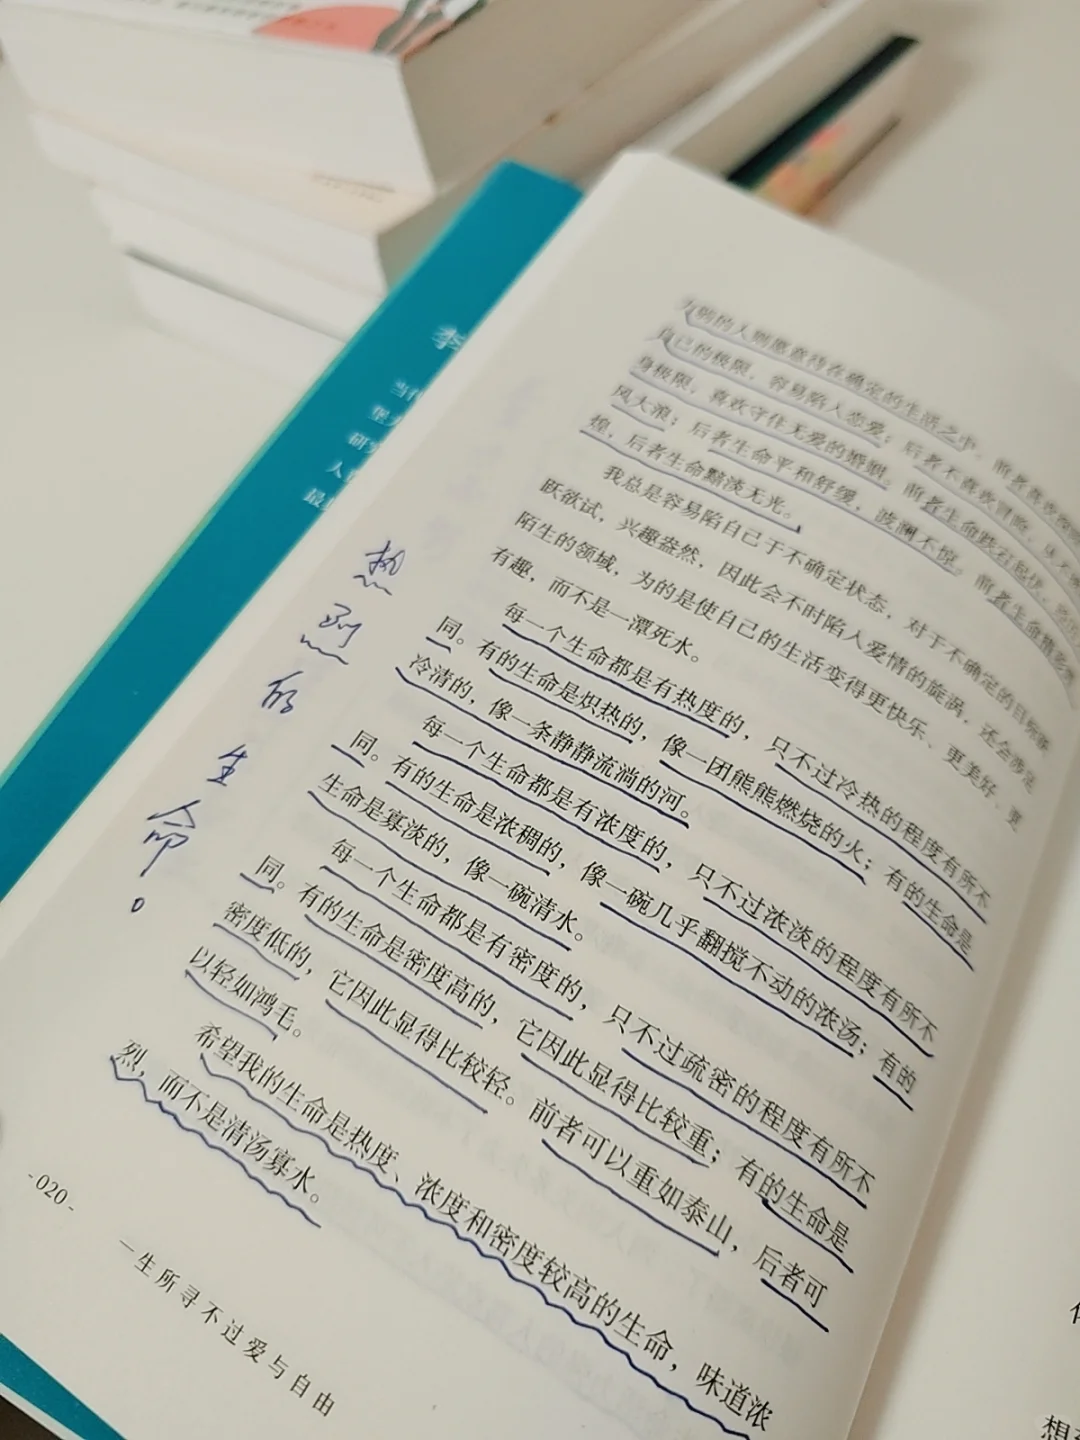 李
当代
研究
人
最
力弱的人则愿意待在确定的生活之中。前者喜欢
自己的极限，容易陷入恋爱；后者不喜欢冒险，从不
身极限，喜欢守住无爱的婚姻。前者生命跌宕起伏，
风大浪；后者生命平和舒缓，波澜不惊。前者生命精彩
煌，后者生命黯淡无光。
我总是容易陷自己于不确定状态，对于不确定的目标
跃欲试，兴趣盎然，因此会不时陷入爱情的旋涡，还会涉足
陌生的领域，为的是使自己的生活变得更快乐、更美好、更
有趣，而不是一潭死水。
每一个生命都是有热度的，只不过冷热的程度有所不
同。有的生命是炽热的，像一团熊熊燃烧的火；有的生命是
冷清的，像一条静静流淌的河。
每一个生命都是有浓度的，只不过浓淡的程度有所不
同。有的生命是浓稠的，像一碗几乎翻搅不动的浓汤；有的
生命是寡淡的，像一碗清水。
每一个生命都是有密度的，只不过疏密的程度有所不
同。有的生命是密度高的，它因此显得比较重；有的生命是
密度低的，它因此显得比较轻。前者可以重如泰山，后者可
以轻如鸿毛。
希望我的生命是热度、浓度和密度较高的生命，味道浓
烈，而不是清汤寡水。
热烈的生命。
-020-
一生所寻不过爱与自由
想